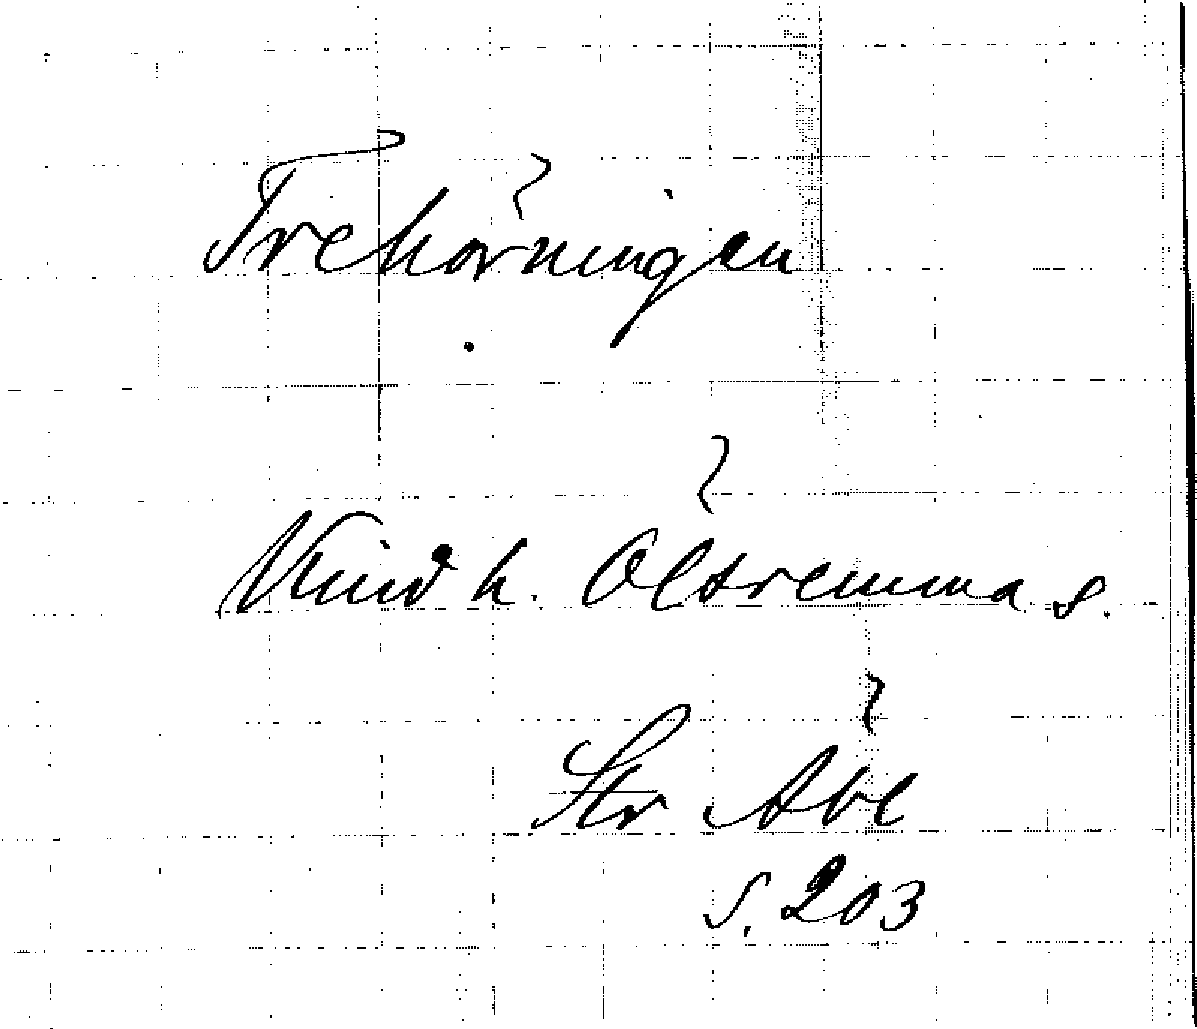 Trehörningen
Kind h. Ölsremma s.
Str Äbl
s. 203